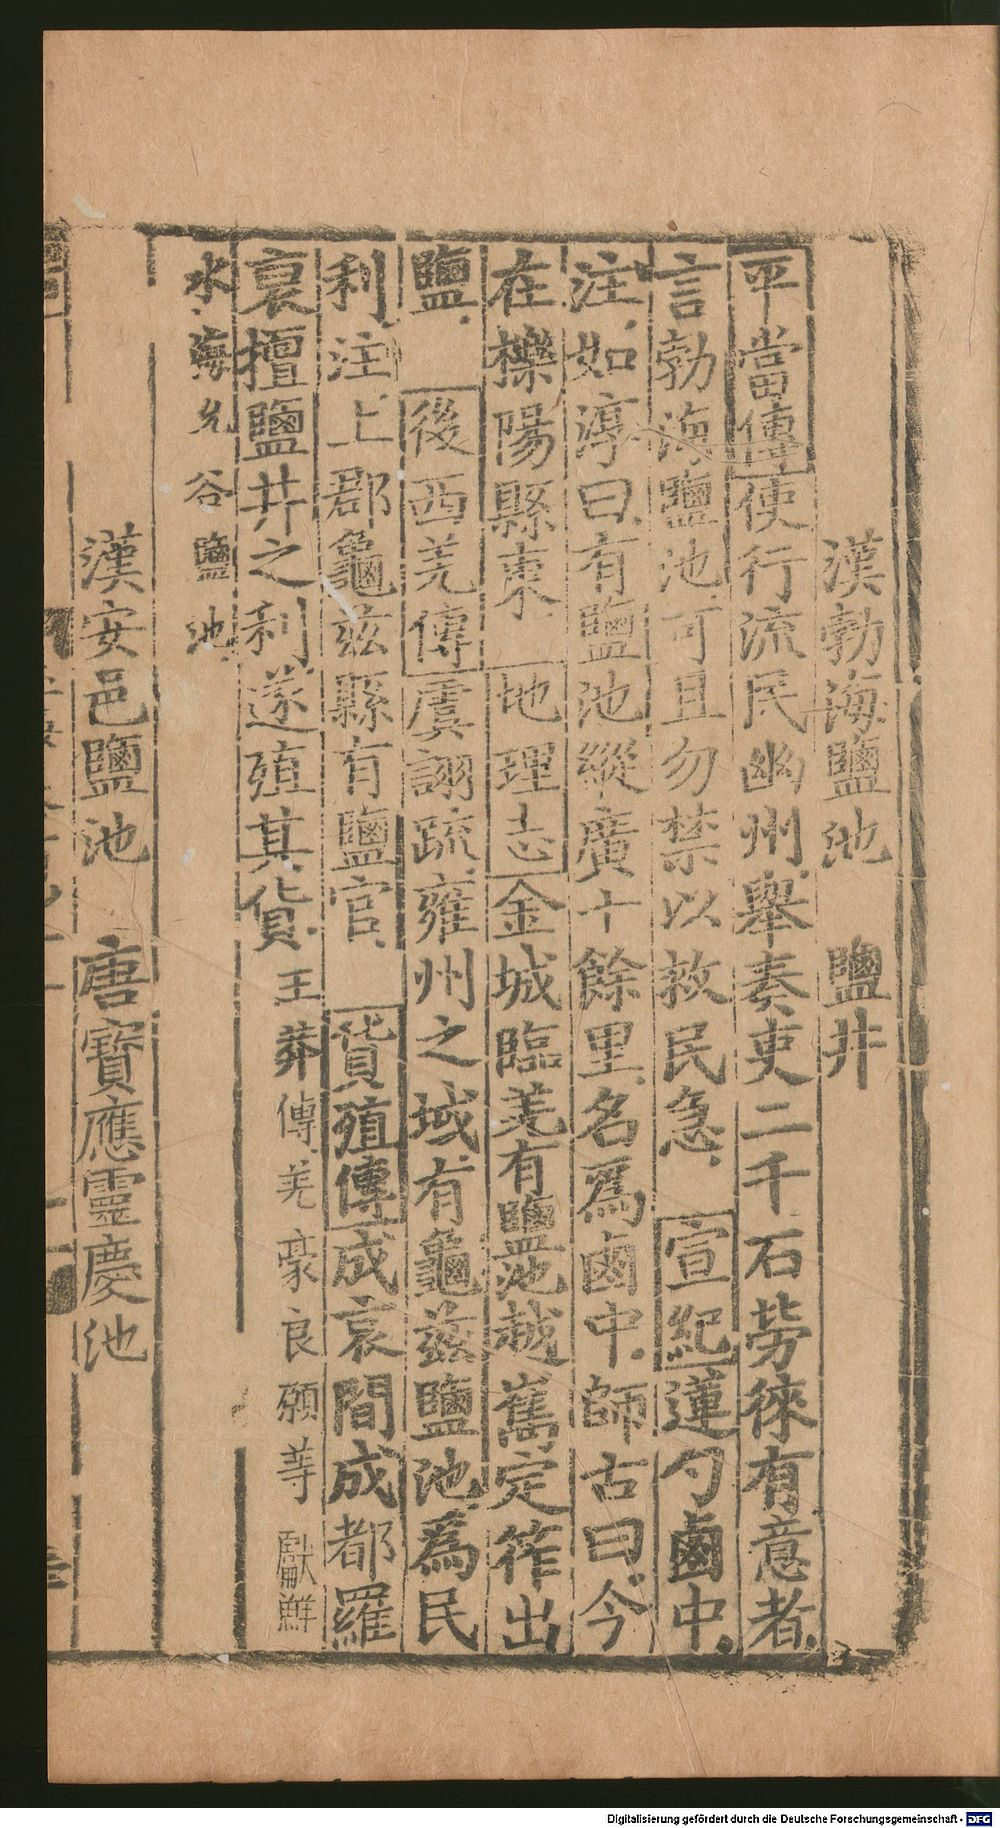 漢勃海鹽池　鹽井
平當傳使行流民幽州舉奏吏二千石勞徠有意者
言勃海鹽池可且勿禁以救民急　宣紀蓮勺鹵中
注如淳曰有鹽池縱廣十餘里名爲鹵中師古曰今
在櫟陽縣東　地理志金城臨羌有鹽池越嶲定筰出
鹽　後西羌傳虞詡疏雍州之域有龜茲鹽池爲民
利注上郡龜茲縣有鹽官　貨殖傳成哀間成都羅
裒擅鹽井之利遂殖其貨　王莽傳羌豪良願等獻鮮
水海允谷鹽池
漢安邑鹽池　唐寶應靈慶池
Digitalisierung gefördert durch die Deutsche Forschungsgemeinschaft - DFG